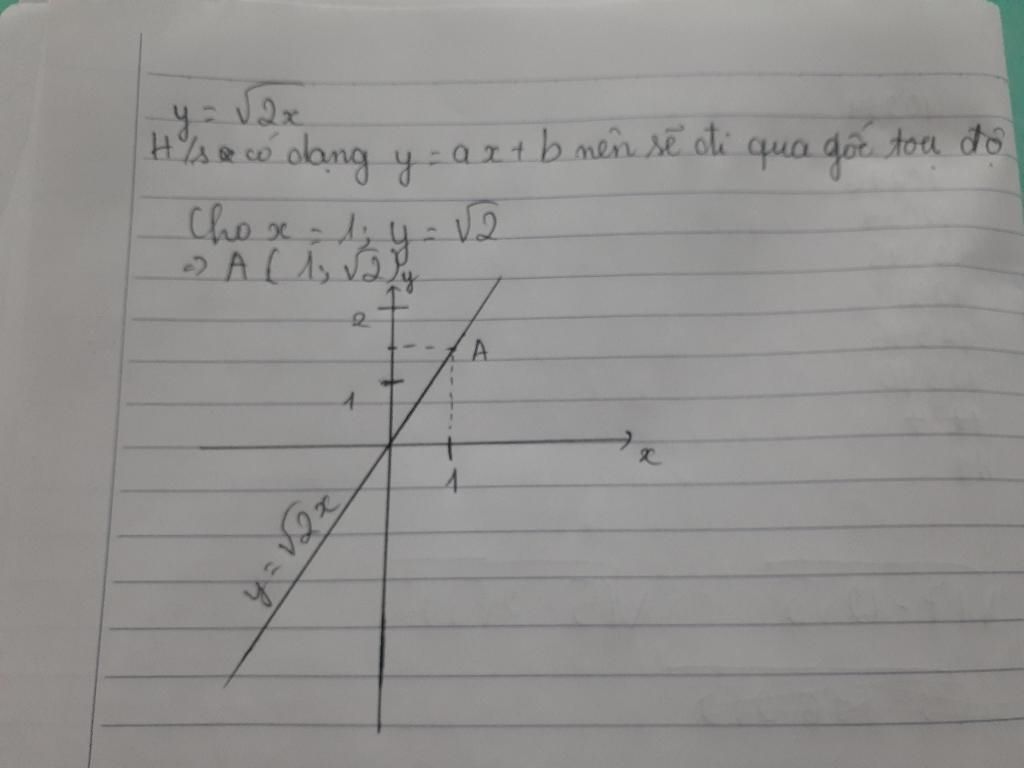 y = √2x
H/s có dạng y = ax + b nên sẽ đi qua gốc toạ độ
Cho x = 1; y = √2
=> A(1; √2)
y
2
A
1
x
1
y = √2x